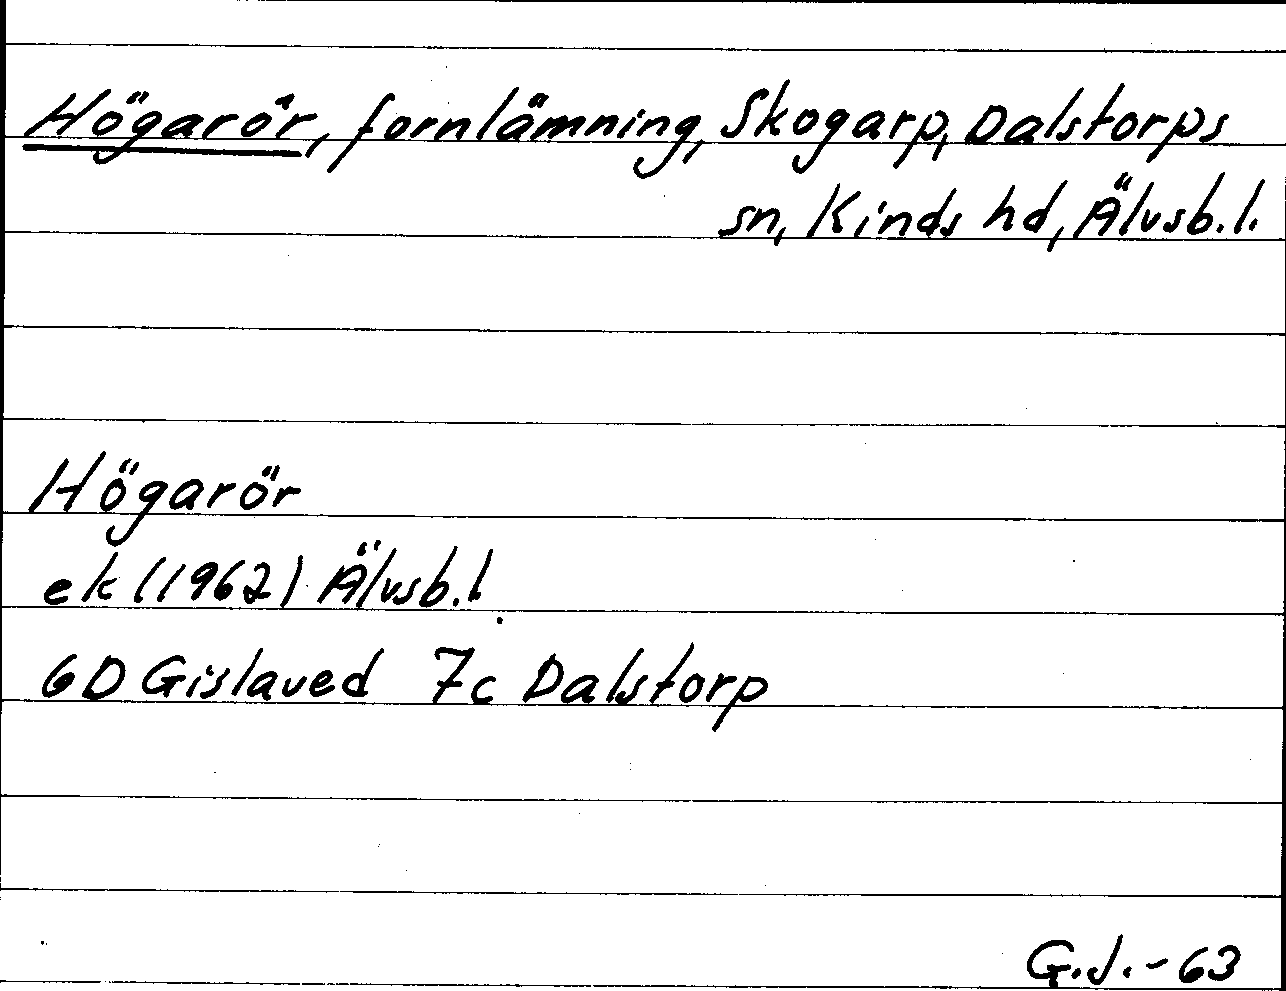 Högarör, fornlämning, Skogarp, Dalstorps
sn, Kinds hd, Älvsb.l.
Högarör
ek (1962) Älvsb.l.
6D Gislaved 7c Dalstorp
G.J.-63